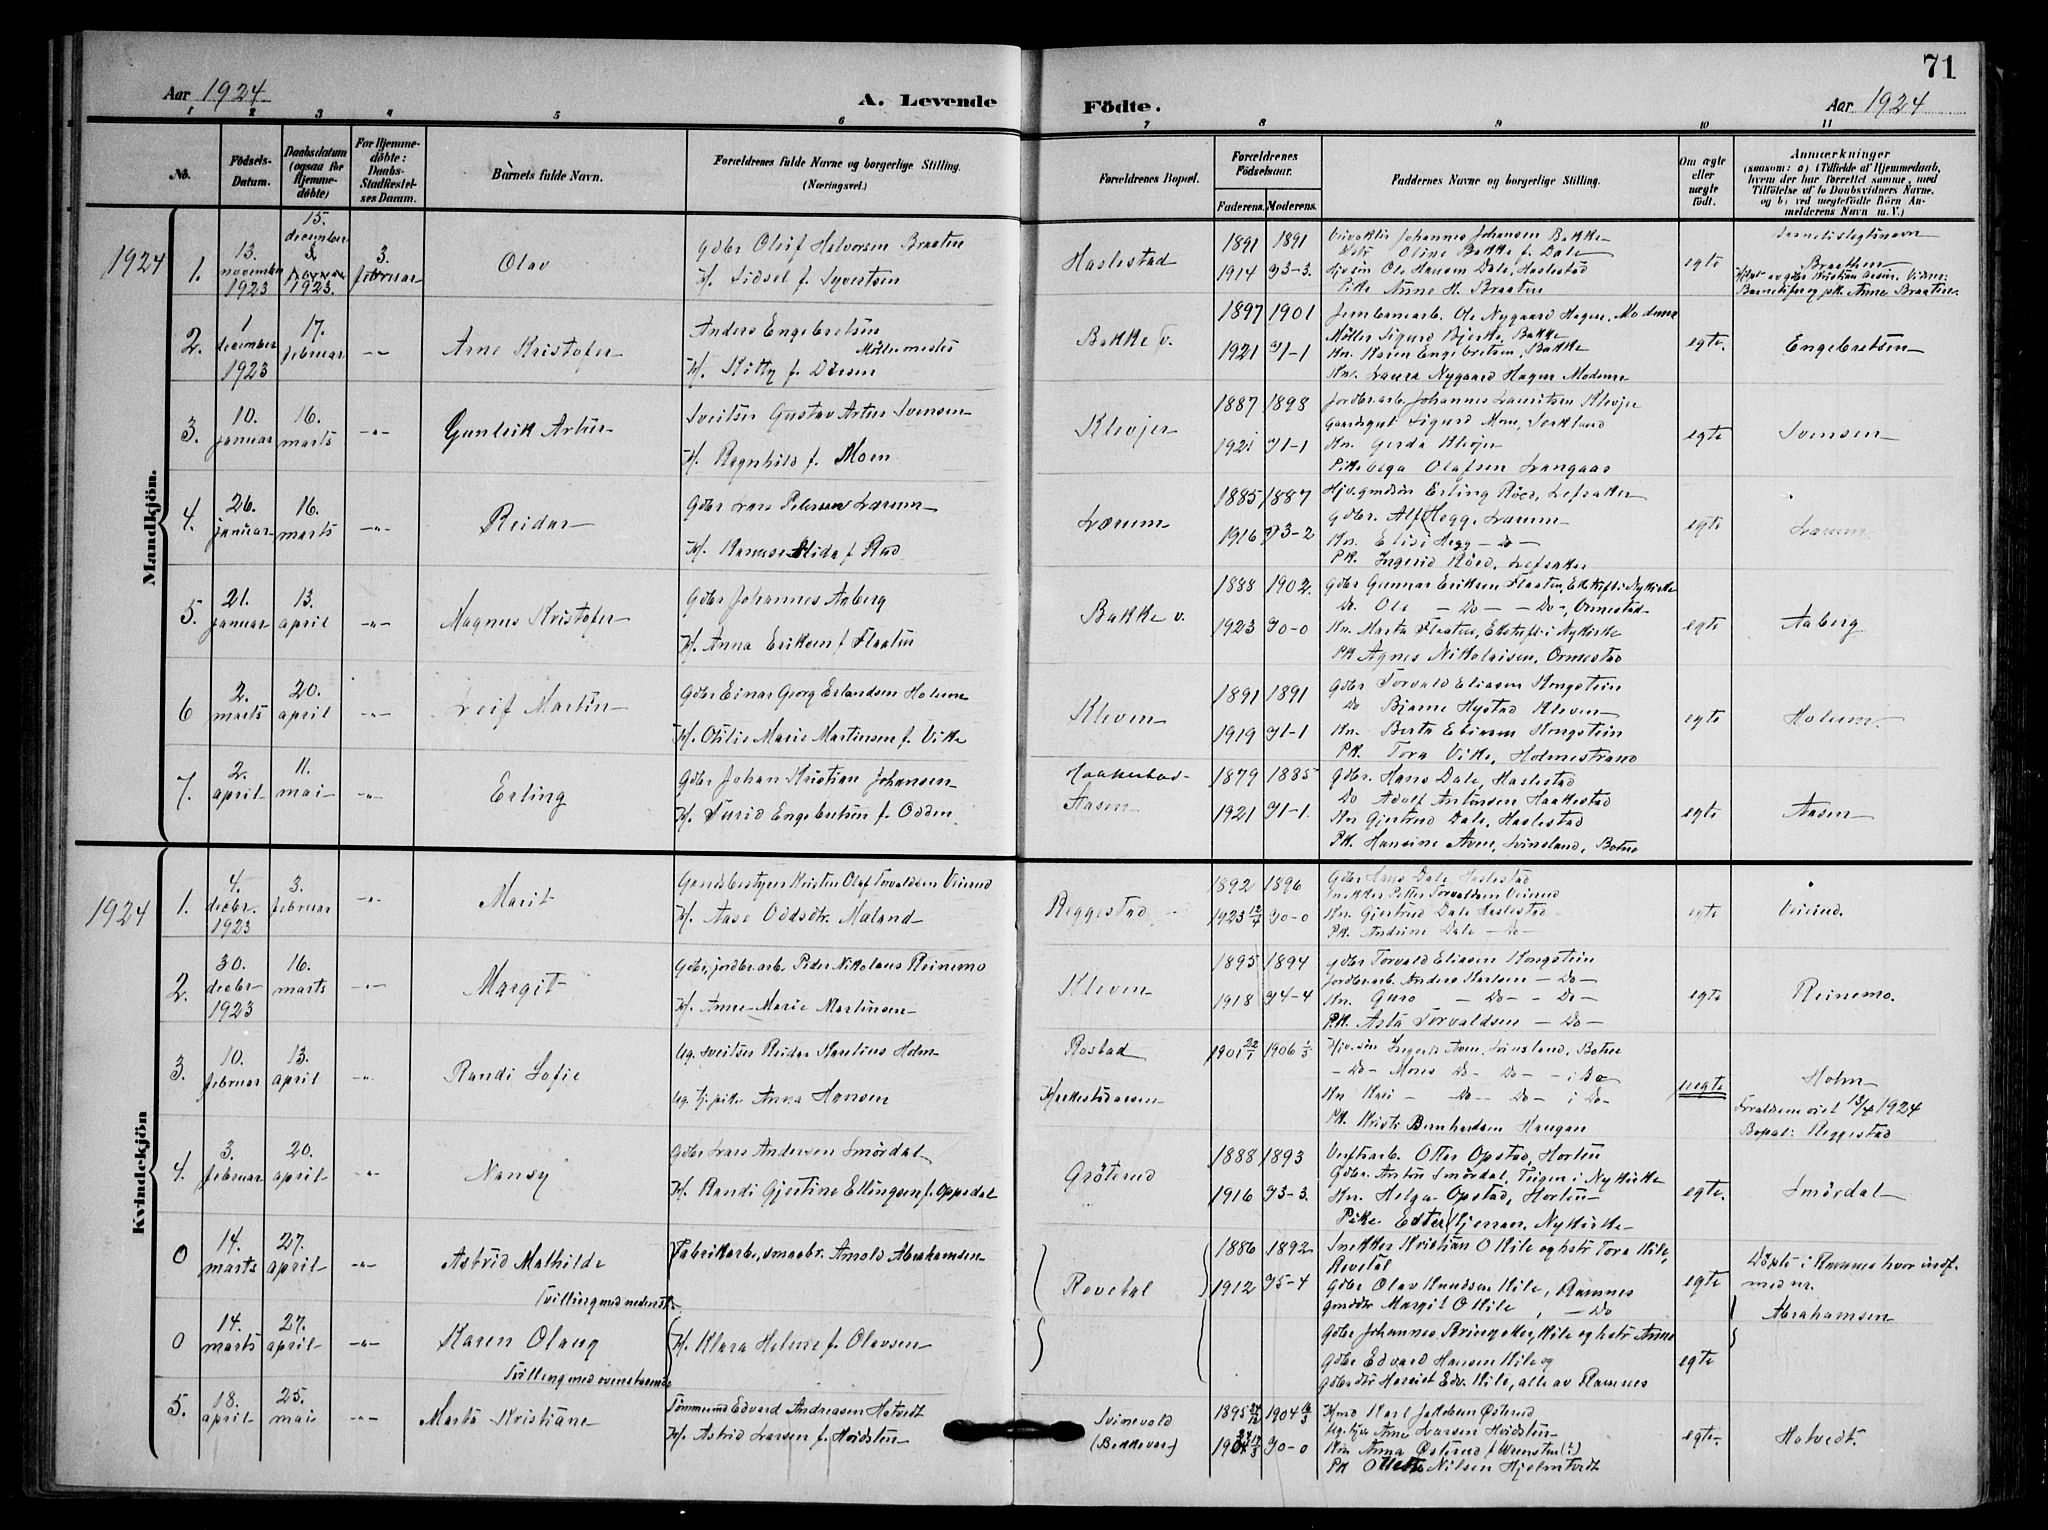 71
Aar 1924
A. Levende
Födte.
Aar 1924
1 2 3 4 5 6 7 8 9 10 11
No.
Födsels-
Datum.
Daabsdatum
(ogsaa for
Hjemme-
döbte)
For Hjemme-
döbte:
Daabs-
Stadfæstel-
ses Datum.
Barnets fulde Navn.
Forældrenes fulde Navne og borgerlige Stilling.
(Næringsvei.)
Forældrenes Bopæl.
Forældrenes
Födselsaar.
Faderens. Moderens.
Faddernes Navne og borgerlige Stilling.
Om ægte
eller
uægte
født.
Anmærkninger
(saasom: a) i Tilfælde af Hjemmedaab,
hvem der har forrettet samme, med
Tilföielse af to Daabsvidners Navne,
og b) ved uægtefödte Börn An-
melderens Navn m. V.)
Mandkjön.
1924
1. 13. november 1923
15. december
1923.
3. februar
Olav
Gdbr Oleif Halvorsen Braaten
H. Sidsel f. Syvertsen
Haslestad
1891 1891
1914 73-3.
Johannes Johansen Bakke
Oline Bakke f. Dale
Ole Hansen Dale, Haslestad
Pike Anne H. Braaten
egte
Braathen
2. 1 december 1923
17. februar
-"-
Arne Kristofer
Anders Engebretsen
Möllermester
H. Kitty f. Dörsen
Bakke v.
1897 1901
1921 71-1
Jernbanearb. Ole Nygaard Hagen, Modum
Möller Sigurd Bjerke, Bakke
Kn. Karen Engebretsen, Bakke
Kn. Laura Nygaard Hagen Modum
egte.
Engebretsen
3. 10. januar
16. marts
-"-
Gunleik Artur
Sveitser Gustav Artur Svensen
H. Ragnhild f. Moen
Klevjer
1887 1898
1921 71-1
Jordbr.arb. Johannes Lauritsen Klevjer
Sigurd Moen,
Kn. Gerda Klevjer
Pike Olga Olafsen Langaas
egte
Svensen
4. 26. januar
16. marts
-"-
Reidar
Gdbr Lars Petersen Lærum
H. Hanna Alida f. Rød
Lærum
1885 1887
1916 73-2
Erling Röed, Lefsaker
Gdbr. Alf Hegg, Lærum
Kn. Elise Hegg -Do-
PK. Ingerid Röed, Lefsaker
egte
Lærum
5. 21. januar
13. april
-"-
Magnus Kristofer
Gdbr Johannes Aaberg
H. Anna Eriksen f. Flaaten
Bakke v.
1888 1902.
1923 70-0
Gdbr Gunnar Eriksen Flaaten, i Nykirke
Do. Ole -Do- -Do-, Ormestad
Kn. Marta Flaaten, i Nykirke
PK Agnes Nikolaisen, Ormestad
egte
Aaberg
6 2. marts
20. april
-"-
Leif Martin
Gdbr Einar Georg Erlandsen Holum
H. Otilie Marie Martinsen f. Vike
Kleven
1891 1891
1919 71-1
Gdbr Torvald Eliasen Kongstein
Do Bjarne Hystad Kleven
Kn. Berta Eliasen Kongstein
PK. Tora Vike, Holmestrand
egte
Holum.
7. 2. april
11. mai
-"-
Erling
Gdbr Johan Kristian Johansen
H. Turid Engebretsen f. Odden.
Haakestad-
Aasen
1879 1885
1921 71-1.
Gdbr. Hans Dale, Haslestad
Do Adolf Antonsen Haakestad
Kn Gjertrud Dale, Haslestad
PK. Hansine Aven, Svinsland, Botne
egte
Aasen
Kvindekjön
1924
1. 4. decbr. 1923
3. februar
-"-
Marit
Gaardsbestyrer Kristen Olaf Torvaldsen Veierud
H. Aase Oddsdtr. Maland
Reggestad
1892 1896
1923 12/4 70-0
Gdbr Hans Dale Haslestad
Snekker Petter Torvaldsen Veierud
Kn. Gjertrud Dale Haslestad
PK. Andrine Dale -Do-
egte
Veierud.
2. 30. decbr 1923
16. marts
-"-
Margit
Gdbr, jordbr.arb. Peder Nikolaus Reinemo
H. Anne Marie Martinsen
Kleven
1895 1894
1918 74-4
Gdbr Torvald Eliasen Kongstein
Jordbr.arb. Anders Karlsen -Do-
Kn. Guro -Do- -Do-
P.K. Asta Torvaldsen -Do-
egte
Reinemo.
3. 10. februar
13. april
-"-
Randi Sofie
Ug. Sveitser Reidar Marelius Holm
Ug. tj. pike Anna Hansen
Rostad
Haakestadaasen
1901 22/1 1906 1/3
Ingvald Aven, Svinsland, Botne
-Do- Mons Do- Do- i Do
Kn Kari - Do- Do- i Do-
PK. Kristi Bernhardsen Haugan
uegte
Holm
Forældrene viet 13/4 1924
Bopæl: Reggestad
4. 3. februar
20. april
-"-
Nansy
Gdbr Lars Andersen Smördal
H. Randi Gjertine Ellingsen f. Oppedal
Gröterud
1888 1893
1916 73-3.
Verftsarb. Otter Opstad, Horten
Gdbr. Anton Smördal, Teigen i Nykirke
Kn. Helga Opstad, Horten
Pike. Ester Hjernaas, Nykirke
egte.
Smördal
0 14. marts
27. april
-"-
Astrid Mathilde
Tvilling med nedenst.
Fabrikarb., smaabr. Arnold Abrahamsen
Revetal
1886 1892
1912 75-4
Snekker Kristian O Hile og hstr Tora Hile,
Revetal
Gdbr Olav Knudsen Hile, Ramnes
Margit O Hile, -Do
egte
Döpt i Ramnes hvor indf.
med nr.
Abrahamsen
0 14. marts
27. april
-"-
Karen Olaug
Tvilling med ovenstaaende
H. Klara Helene f. Olavsen
Gdbr Johannes Bringaker, Hile og hstr Anne
Gdbr Edvard Hansen Hile og
Gdbrdtr Harriet Edv. Hile, alle av Ramnes
egte
5. 18. april
25. mai
-"-
Marta Kristiane
Tömmermd Edvard Andreasen Hotvedt
H. Astrid Larsen f. Hvidsten
Svinevold
(Bekkevar)
1895 1904
70-0
Karl Jakobsen Østerud
Arne Larsen Hvidsten
Kn. Anna Østerud f Wrensten (?)
PK Ollette Nilsen Hjelmtvedt
egte.
Hotvedt.